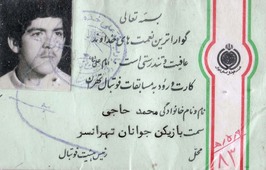 بسمه تعالی
گواراترین نعمت های خداوند
عافیت و تندرستی است
کارت ورود به مسابقات فوتبال تهران
نام و نام خانوادگی محمد حاجی
سمت بازیکن جوانان تهرانسر
محل
رئیس هیئت فوتبال
۸۳